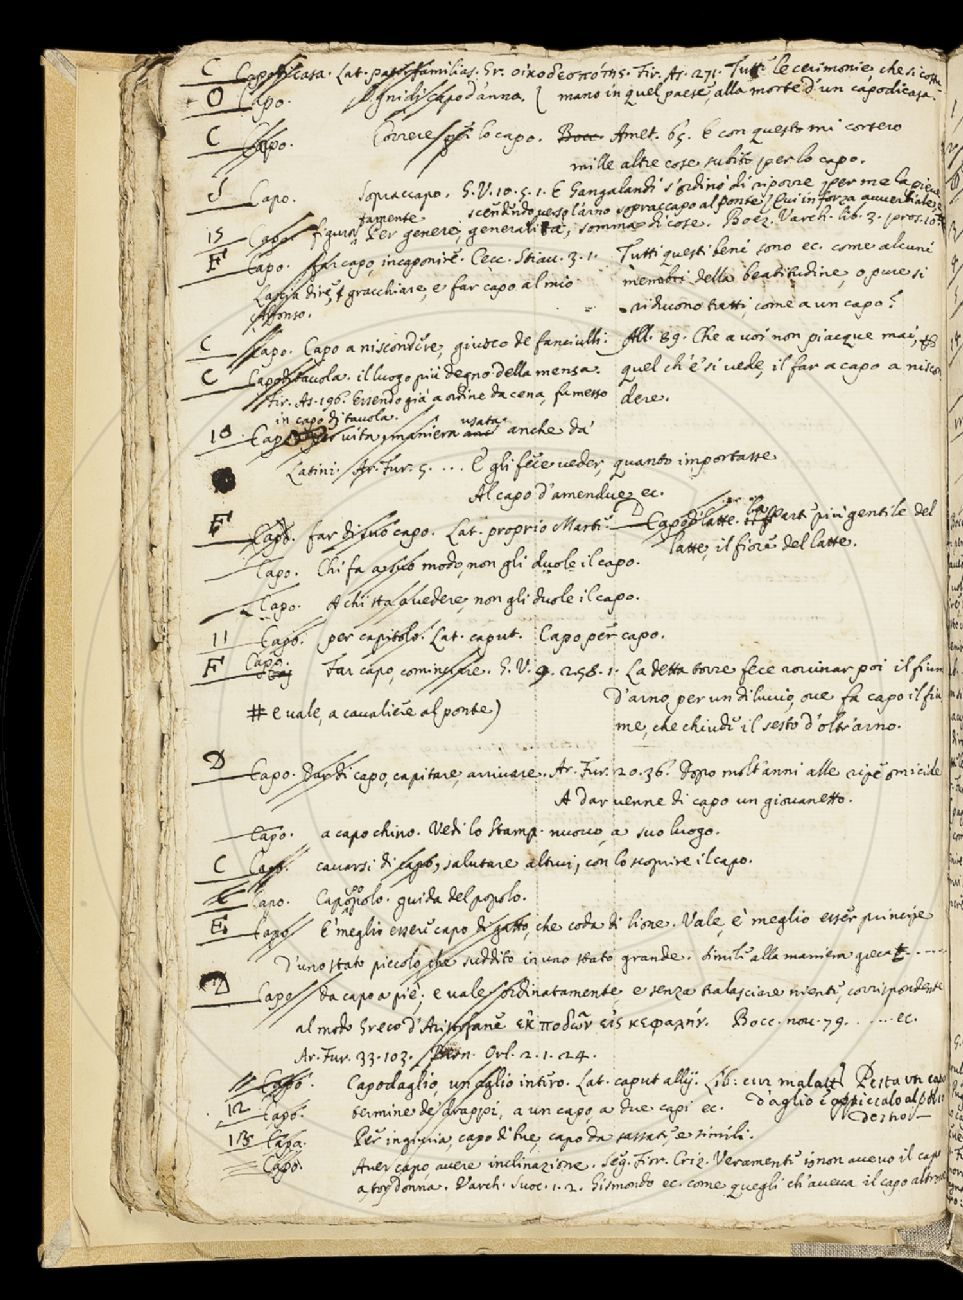 C Capo di casa. Lat. paterfamilias. Gr. οἰκοδεσπότης. Fir. As. 271. Tutte le cerimonie, che si costu
O Capo. Ogni di, capo d'anno. { mano in quel paese, alla morte d'un capo di casa.
C Capo. Correre per lo capo. Bocc. Amet. 65. E con questo mi corsero
mille altre cose subito per lo capo.
S Capo. sopraccapo. G. V. 10. 5. 1. E Gangalandi s'ordinò di riporre per me la pieve
scendendo verso l'arno sopraccapo al ponte (Qui in forza avverbiale, #
15 Capo. figuratamente Per genere, generalità, somma di cose. Boez. Varch. lib. 3. pros. 10.
F Capo. far capo, incaponire. Cecc. Stiav. 3. 1. Tutti questi beni sono ec. come alcuni
Lascia dire, e gracchiare, e far capo al mio membri della beatitudine, o pure si
Alfonso. riducono tutti, come a un capo?
C Capo. Capo a niscondere, giuoco de fanciulli. All. 89. Che a voi non piacque mai,
C Capo di tavola. il luogo più degno della mensa. quel ch'è si vede, il far a capo a niscon
Fir. As. 196. Essendo già a ordine da cena, fu messo dere.
in capo di tavola.
10 Capo per vita, maniera usata anche da
Latini. Ar. Fur. 5. .... E gli fece veder, quanto importasse
Al capo d'amendue ec.
F Capo. far di suo capo. Lat. proprio Marte. D Capo di latte. la parte più gentile del
latte, il fiore del latte.
Capo. Chi fa a suo modo, non gli duole il capo.
Capo. A chi sta a vedere, non gli duole il capo.
11 Capo. per capitolo. Lat. caput. Capo per capo.
F Capo. Far capo, cominciare. G. V. 9. 258. 1. La detta torre fece rovinar poi il fiume
D'arno per un diluvio, ove fa capo il fiu
# e vale, a cavaliere al ponte) me, che chiude il sesto d'oltrarno.
D Capo. dar di capo, capitare, arrivare. Ar. Fur. 20. 36. Dopo molt'anni alle ripe omicide
A dar venne di capo un giovanetto.
Capo. a capo chino. Vedi lo Stamp. nuovo, a suo luogo.
C Capo. cavarsi di capo, salutare altrui, con lo scoprire il capo.
C Capo. Capopopolo. guida del popolo.
E Capo È meglio essere capo di gatto, che coda di lione. Vale, è meglio esser principe
D'uno stato piccolo, che suddito in uno stato grande. Simile alla maniera greca
D Capo da capo a piè; e vale, ordinatamente, e senza tralasciare niente, corrispondente
al modo Greco d'Aristofane ἐκ ποδῶν εἰς κεφαλήν. Bocc. nov. 79. ...... ec.
Ar. Fur. 33. 103. Bern. Orl. 2. 1. 24.
11 Capo. Capo d'aglio, un aglio intero. Lat. caput allij. Lib. cur. malatt. Pesta un capo
d'aglio
12 Capo. termine de' drappi, a un capo, a due capi ec.
13 Capo. Per ingiuria, capo di bue, capo da sassate, e simili.
Capo. Aver capo, avere inclinazione. Seg. Fior. Criz. Veramente io non avevo il capo
a tor donna. Varch. Suoc. 1. 2. Gismondo ec. come quegli ch'aveva il capo altrove